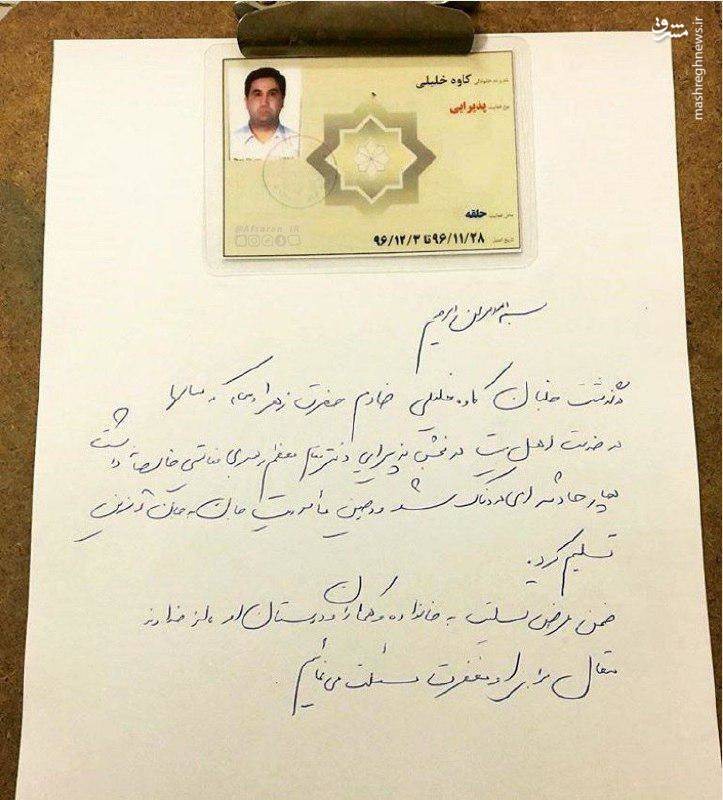 مشرق
mashreghnews.ir
نام و نام خانوادگی کاوه خلیلی
نوع فعالیت پذیرایی
محل فعالیت حلقه
تاریخ اعتبار ۹۶/۱۱/۲۸ تا ۹۶/۱۲/۳
@Afsaran_IR
بسم الله الرحمن الرحیم
درگذشت جانباز کاوه خلیلی خادم حضرت زهرا که سالها
در خدمت اهل بیت در بخش پذیرایی دفتر مقام معظم رهبری فعالیتی خالصانه داشت
دچار حادثه ای دردناک شد و در حین مأموریت جان به جان آفرین
تسلیم کرد.
ضمن عرض تسلیت به خانواده و همکاران و دوستان او، از خداوند
متعال برای او مغفرت مسئلت می نمائیم